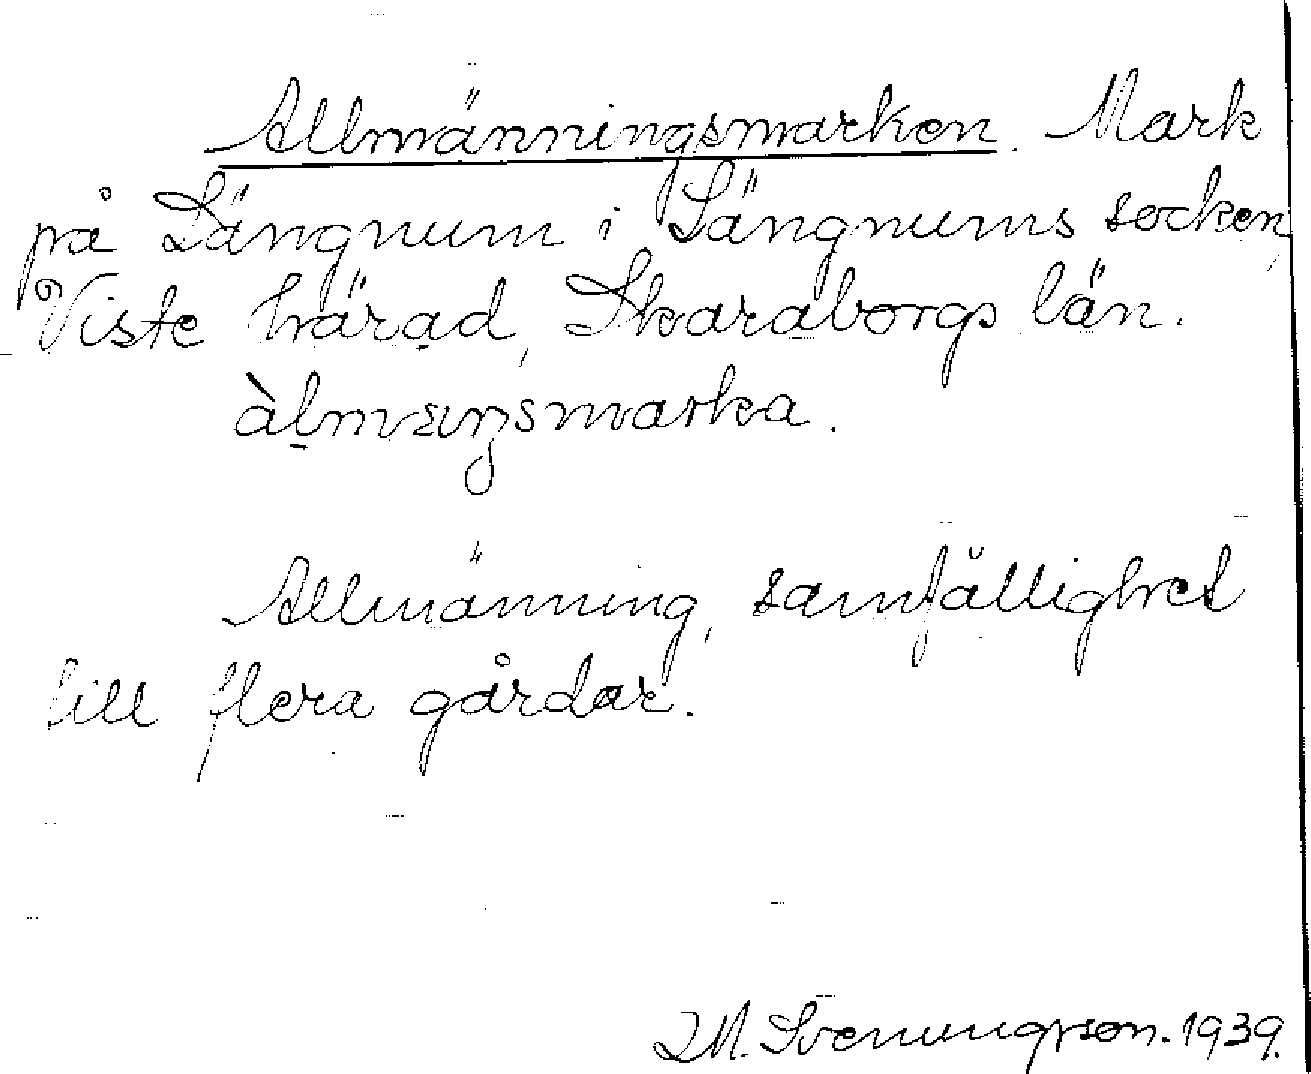 Allmänningsmarken. Mark
på Längnum i Längnums socken,
Viste härad, Skaraborgs län.
àlmæŋsmarka.
Allmänning, samfällighet
till flera gårdar.
I.M. Svenungsson. 1939.